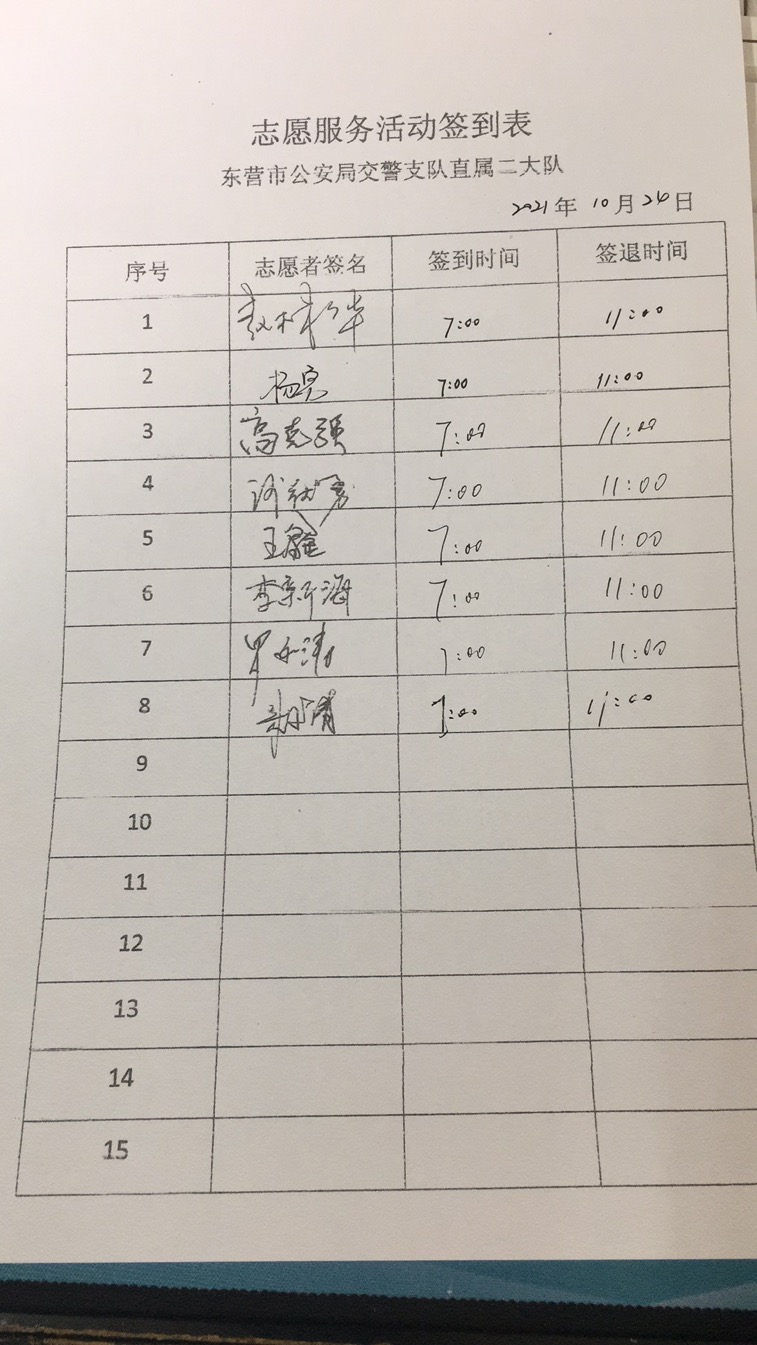 志愿服务活动签到表
东营市公安局交警支队直属二大队
2021年 10月 24日
序号 志愿者签名 签到时间 签退时间
1 7:00 11:00
2 杨亮 7:00 11:00
3 高克强 7:00 11:00
4 7:00 11:00
5 王鑫 7:00 11:00
6 李新海 7:00 11:00
7 7:00 11:00
8 7:00 11:00
9
10
11
12
13
14
15